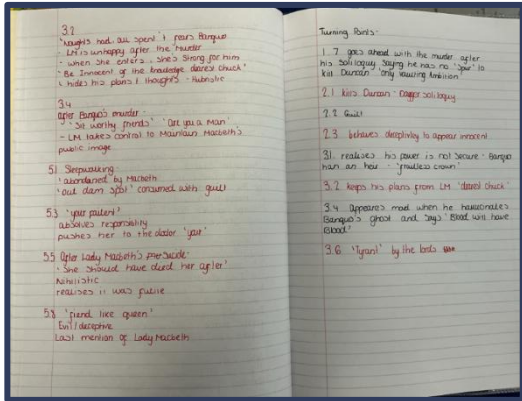 3.2
'Noughts had, all spent' & fears Banquo
- LM is unhappy after the murder
- when she enters, she's strong for him
'Be innocent of the knowledge dearest chuck'
↳ hides his plans & thoughts - Hubristic
3.4
after Banquo's murder -
- 'Sit worthy friends' 'Are you a Man'
- LM takes control to Maintain Macbeth's
public image
5.1 Sleepwalking -
- abandoned by Macbeth
- 'out dam spot' consumed with guilt
5.3 'your patient'
absolves responsibility
pushes her to the doctor 'your'
5.5 After Lady Macbeth's suicide
- 'She should have died after'
Nihilistic
realises it was futile
5.8 'fiend like queen'
Evil/deceptive
Last mention of Lady Macbeth
Turning Points-
1.7 goes ahead with the murder after
his soliloquy saying he has no 'spur' to
kill Duncan 'only vaulting Ambition'
2.1 kills Duncan - Dagger soliloquy
2.2 Guilt
2.3 behaves deceptively to appear innocent
3.1 realises his power is not secure - Banquo
has an heir - 'fruitless crown'
3.2 keeps his plans from LM 'dearest chuck'
3.4 Appeares mad when he hallucinates
Banquo's ghost and says 'Blood will have
Blood'
3.6 'Tyrant' by the lords